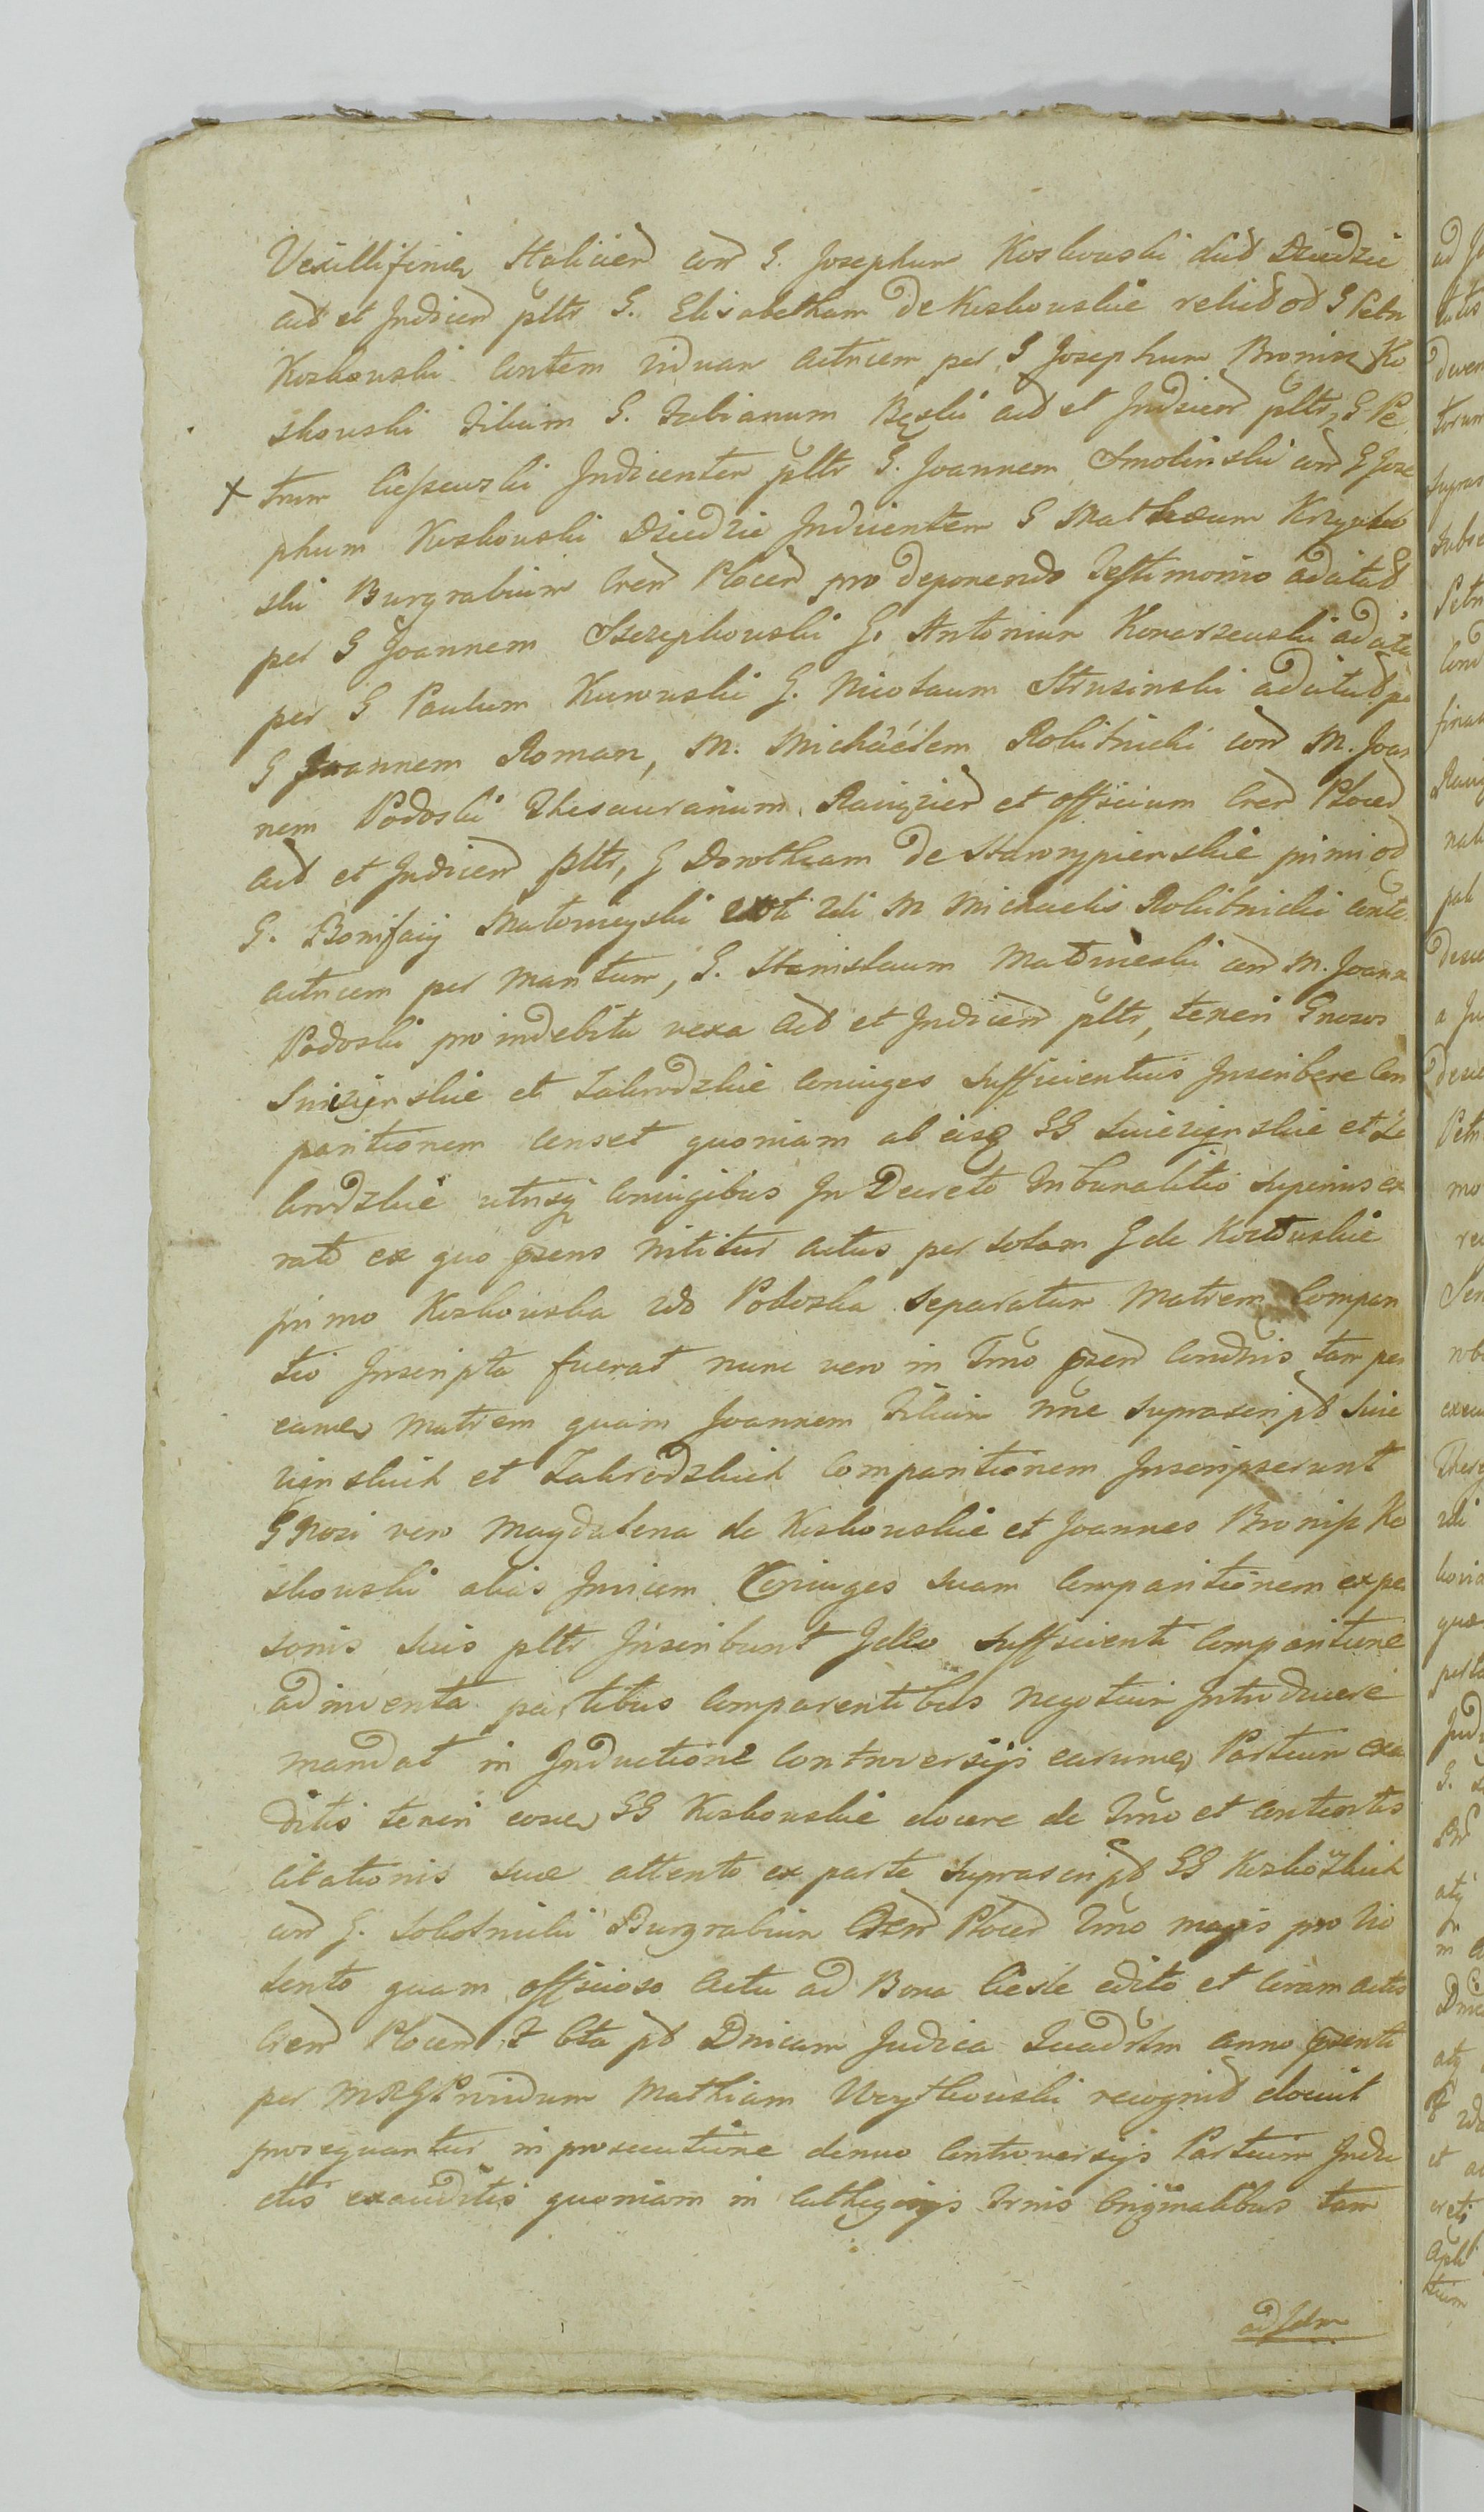 Vexilliferum Halicien con G. Josephum Koskowski dict Dziedzic
act et Indicen pltr G. Elisabetham de Koskowskie relict od G Petri
Koskowski contem viduam actricem per G Josephum Bronisz Ko
skowski Filium G. Fabianum Bęski act et Indicen pltr, G Pe
x trum Ciessewski Indicentem pltr G. Joannem Smolinski con G Jose
phum Koskowski Dziedzic Indicentem G Mathæum Krzyski
ski Burgrabium Cren Plocen pro deponendo Testimonio adcitat
per G Joannem Szczepkowski G. Antonium Konarzewski adcita
per G Paulum Kurowski G. Nicolaum Strusinski adcitat per
G Joannem Roman, M. Michäélem Rokitnicki con M. Joan
nem Podoski Thesaurarium Raciązien et officium Cren Plocen
act et Indicen pltr, G Dorotheam de Starorypienskie primi od
G. Bonifacij Matowieyski 2do M Michaelis Rokitnicki conte
actricem per Maritum, G. Stanislaum Matowieski con M. Joann
Podoski pro indebita vexa act et Indicen pltr, teneri Gnosos
Suiezienskie et Zakrodzkie Coniuges sufficientius Inscribere Com
paritionem censet quoniam ab eisq GG Suiezienskie et Za
krodzkie utrisq Coniugibus In Decreto Tribunalitio superius ex
rato ex quo psens nititur actus per solam G de
primo Koskowska 2do Podoska separatam Matrem Compari
tio Inscripta fuerat nunc vero in Tmo psen Condnis tam per
eam Matrem quam Joannem Filium nne suprascript Suie
zienskich et Zakrodzkich Comparitionem Inscripserunt
Gnosi vero Magdalena de Koskowskie et Joannes Bronisz Ko
skowski alias Invicem Coniuges suam Comparitionem ex per
sonis suis pltr Inscribunt Ideo sufficienti Comparitione
adinventa partibus Comparentibus negotium Introducere
mandat in Inductione Controversijs earum Partium exau
ditis teneri eos GG Koskowskie docere de Tmo et Contentis
citationis suæ attento ex parte suprascript GG Koskowskich
con G. Sokolnicki Burgrabium Cren Plocen Tmo magis pro vio
lento quam officioso actu ad Bona Ciesle edito et Coram actis
Cren Plocen Sbta pt Dnicam Judica Quadrlm anno psenti
per Providum Mathiam Woytkowski recognit docuit
prosequantur in prosecutione denuo Controversijs Partium Indu
ctis exauditis quoniam in Cathegorijs Trnis Originalibus tam